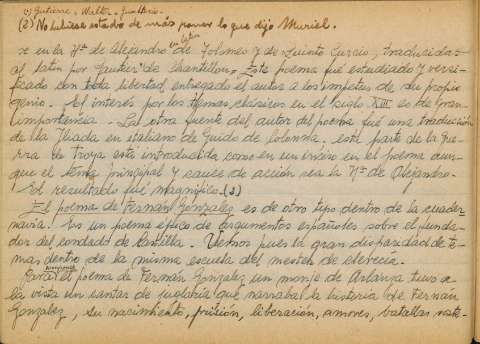 (1) Gutierre - Walter - Gualterio.
(2) No hubiese estado de más poner lo que dijo Muriel.
se en la Hª de Alejandro de Folomes y de Quinto Curcio, traducida
al latín por Gautier de Chantillon. Este poema fué estudiado y versi-
ficado con toda libertad, entregado el autor a los impetus de su propio
genio. El interés por los temas clásicos en el siglo XIII es de gran
importancia. La otra fuente del autor del poema fué una traducción
de la Iliada en italiano de Guido de Colonna. esta parte de la gue-
rra de Troya está introducida como en un inciso en el poema aun-
que el tema principal y cauce de acción sea la Hª de Alejandro.
El resultado fué magnífico. (2)
El poema de Fernán González es de otro tipo dentro de la cuader-
navía. Es un poema épico de argumentos españoles sobre el funda-
dor del condado de Castilla. Vemos pues la gran disparidad de te-
mas dentro de la misma escuela del mester de clerecía.
el poema de Fernán González un monje de Arlanza tuvo a
la vista un cantar de juglaría que narraba la historia de Fernán
González, su nacimiento, prisión, liberación, amores, batallas